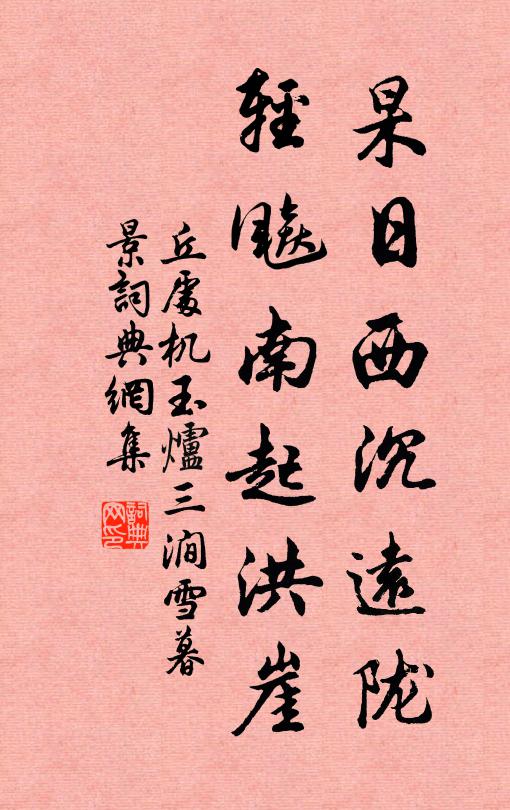 杲日西沉遠陇
輕飈南起洪崖
丘處机玉爐三澗雪暮
景詞典網集
詞典网印